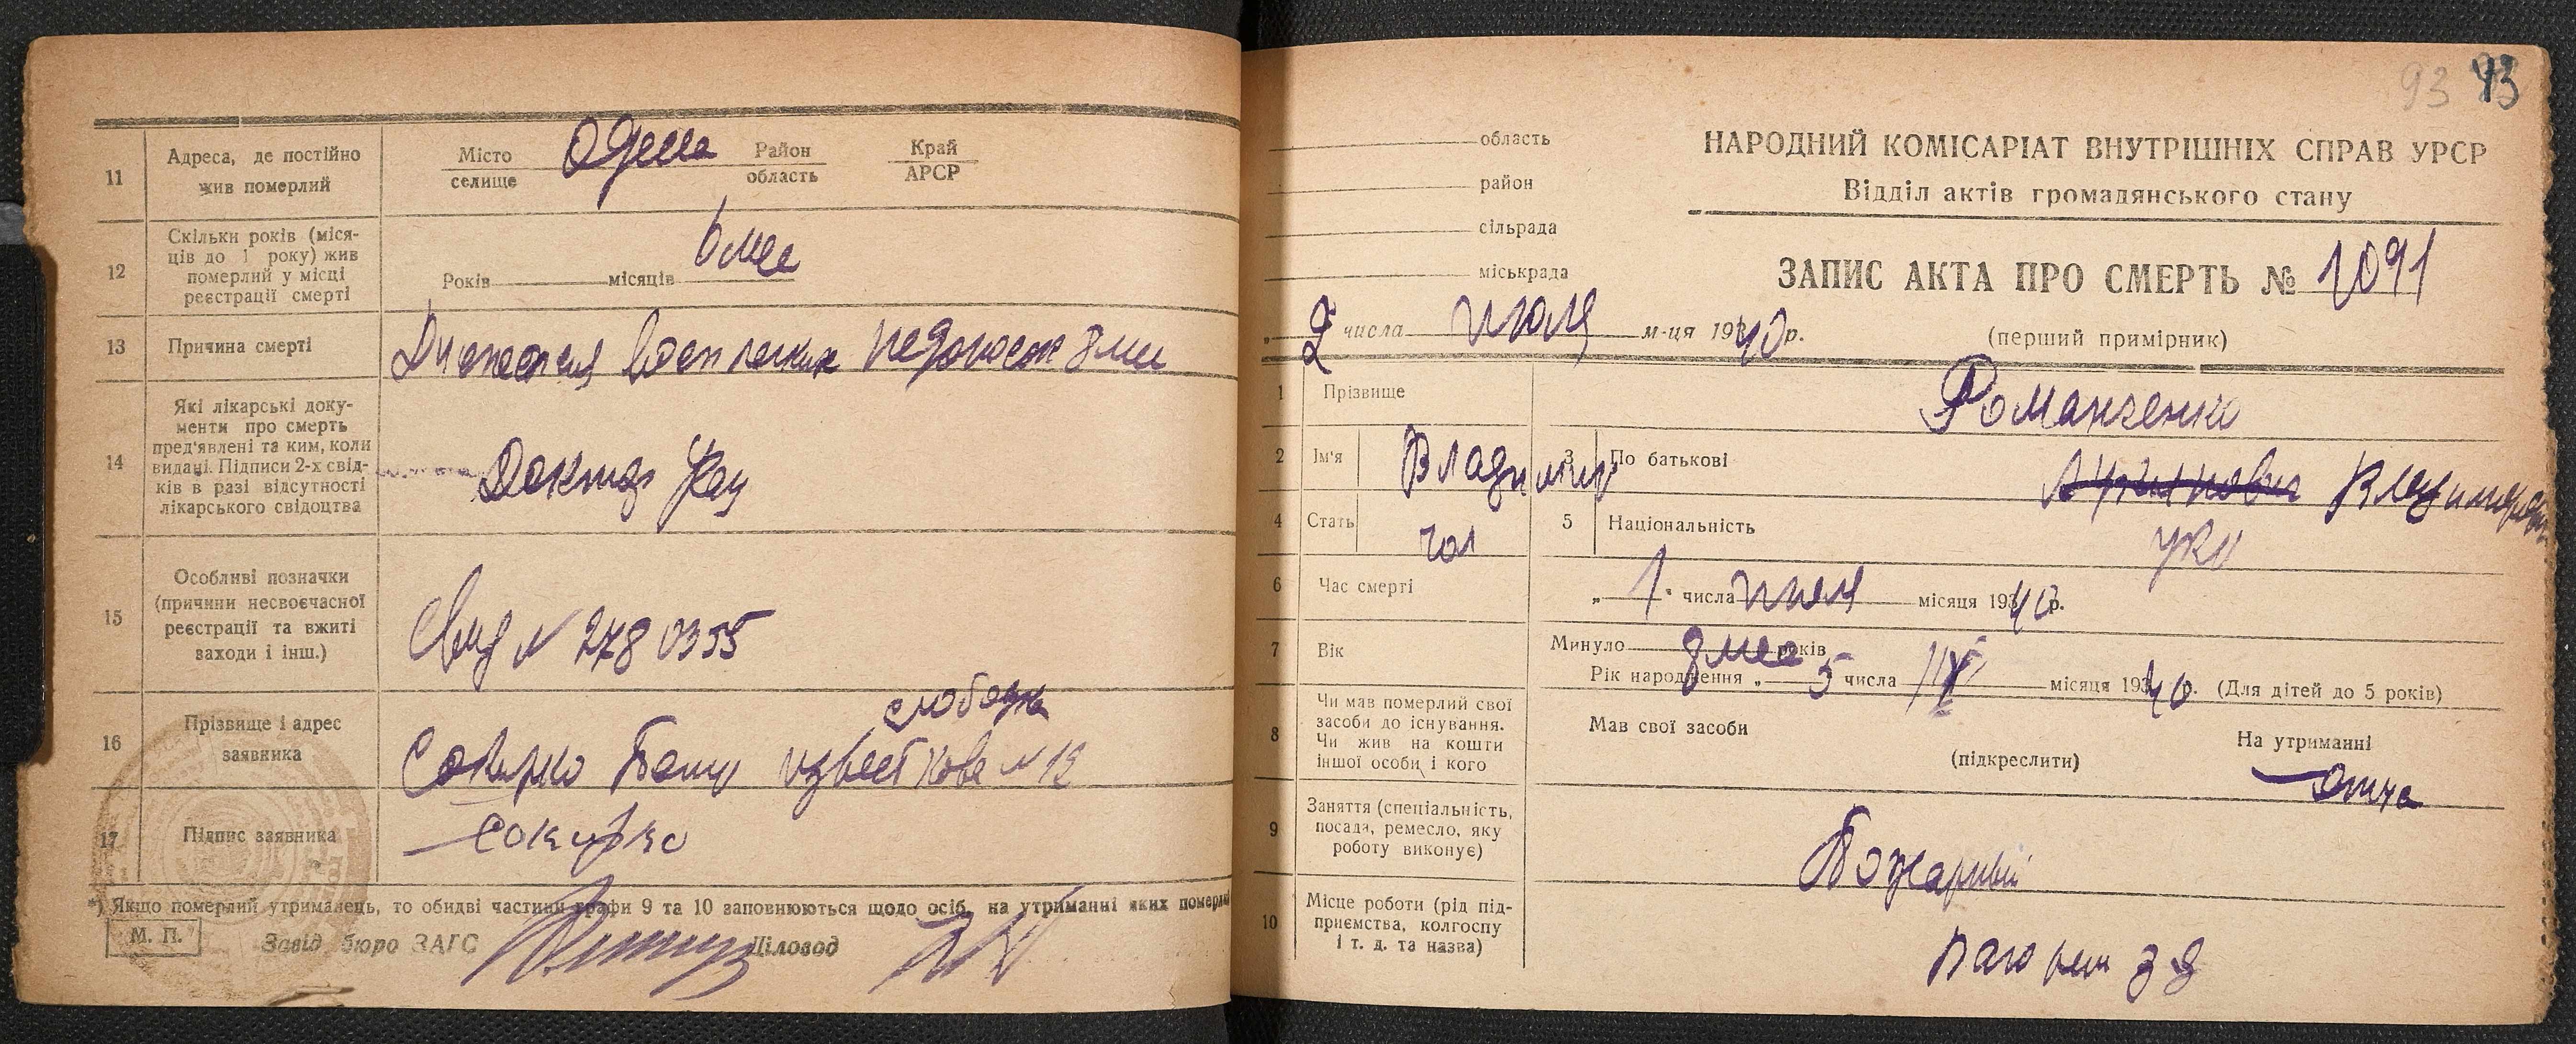 11
Адреса, де постійно
жив померлий
Місто
селище
Одесса
Район
область
Край
АРСР
12
Скільки років (міся-
ців до 1 року) жив
померлий у місці
реєстрації смерті
Років
місяців
13
Причина смерті
Диспепсия восп легких недоносок 8 ми
14
Які лікарські доку-
менти про смерть
пред'явлені та ким, коли
видані. Підписи 2-х свід-
ків в разі відсутності
лікарського свідоцтва
Доктор
15
Особливі позначки
(причини несвоєчасної
реєстрації та вжиті
заходи і інш.)
Свид № 2780355
16
Прізвище і адрес
заявника
слободка
Сокирко
17
Підпис заявника
Сокирко
*) Якщо померлий утриманець, то обидві частини графи 9 та 10 заповнюються щодо осіб, на утриманні яких померлий
М. П.
Завід бюро ЗАГС
Діловод
93 93
область
район
сільрада
міськрада
НАРОДНИЙ КОМІСАРІАТ ВНУТРІШНІХ СПРАВ УРСР
Відділ актів громадянського стану
ЗАПИС АКТА ПРО СМЕРТЬ № 1091
(перший примірник)
„ 2 числа июля м-ця 1940 р.
1
Прізвище
Романченко
2
Ім'я
Владимир
3
По батькові
Владимирович
4
Стать
чол
5
Національність
укр
6
Час смерті
„ 1 " числа июля місяця 1940 р.
7
Вік
Минуло 8 мес років
Рік народження „ 5 числа місяця 1940. (Для дітей до 5 років)
8
Чи мав померлий свої
засоби до існування.
Чи жив на кошти
іншої особи і кого
Мав свої засоби
(підкреслити)
На утриманні
Отца
9
Заняття (спеціальність,
посада, ремесло, яку
роботу виконує)
Пожарный
10
Місце роботи (рід під-
приємства, колгоспу
і т. д. та назва)